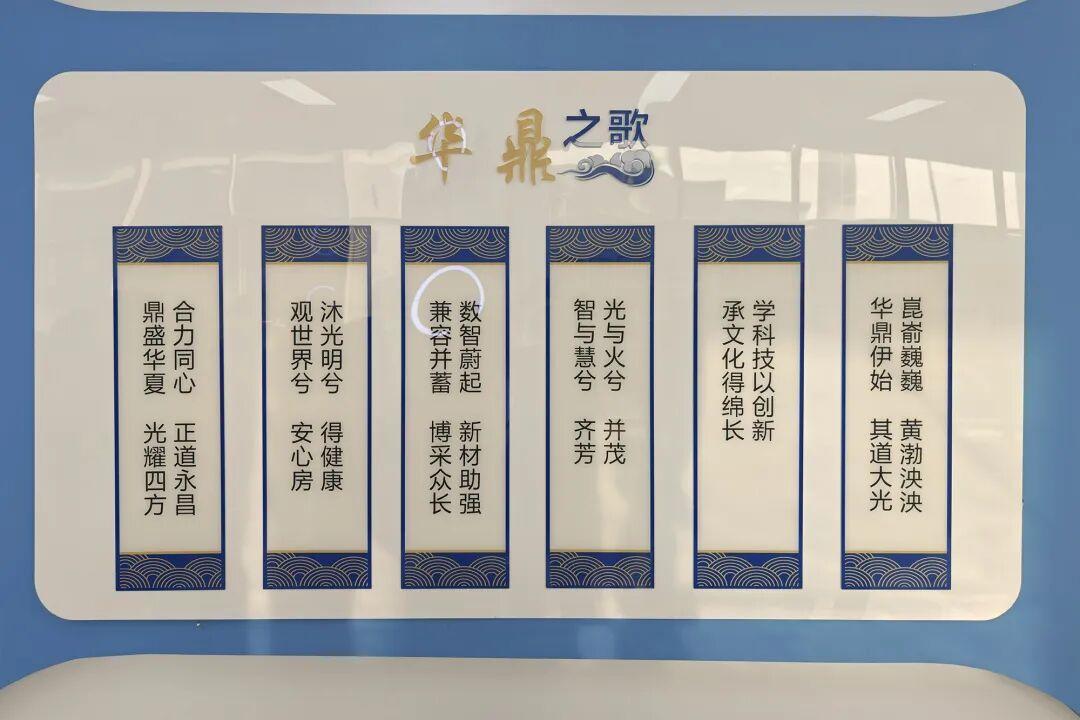 华鼎之歌
崑嵛巍巍 黄渤泱泱
华鼎伊始 其道大光
学科技以创新
承文化得绵长
光与火兮 并茂
智与慧兮 齐芳
数智蔚起 新材助强
兼容并蓄 博采众长
沐光明兮 得健康
观世界兮 安心房
合力同心 正道永昌
鼎盛华夏 光耀四方